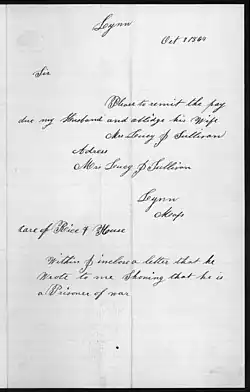 Lynn
Oct 1864
Sir
Please to remit the pay
due my Husband and oblidge his Wife
Mrs Loucy J Sullivan
Adress
Mrs Loucy J Sullivan
Lynn
Mass
Care of Rice & House
Within I inclose a letter that he
Wrote to me Showing that he is
a Prisoner of war